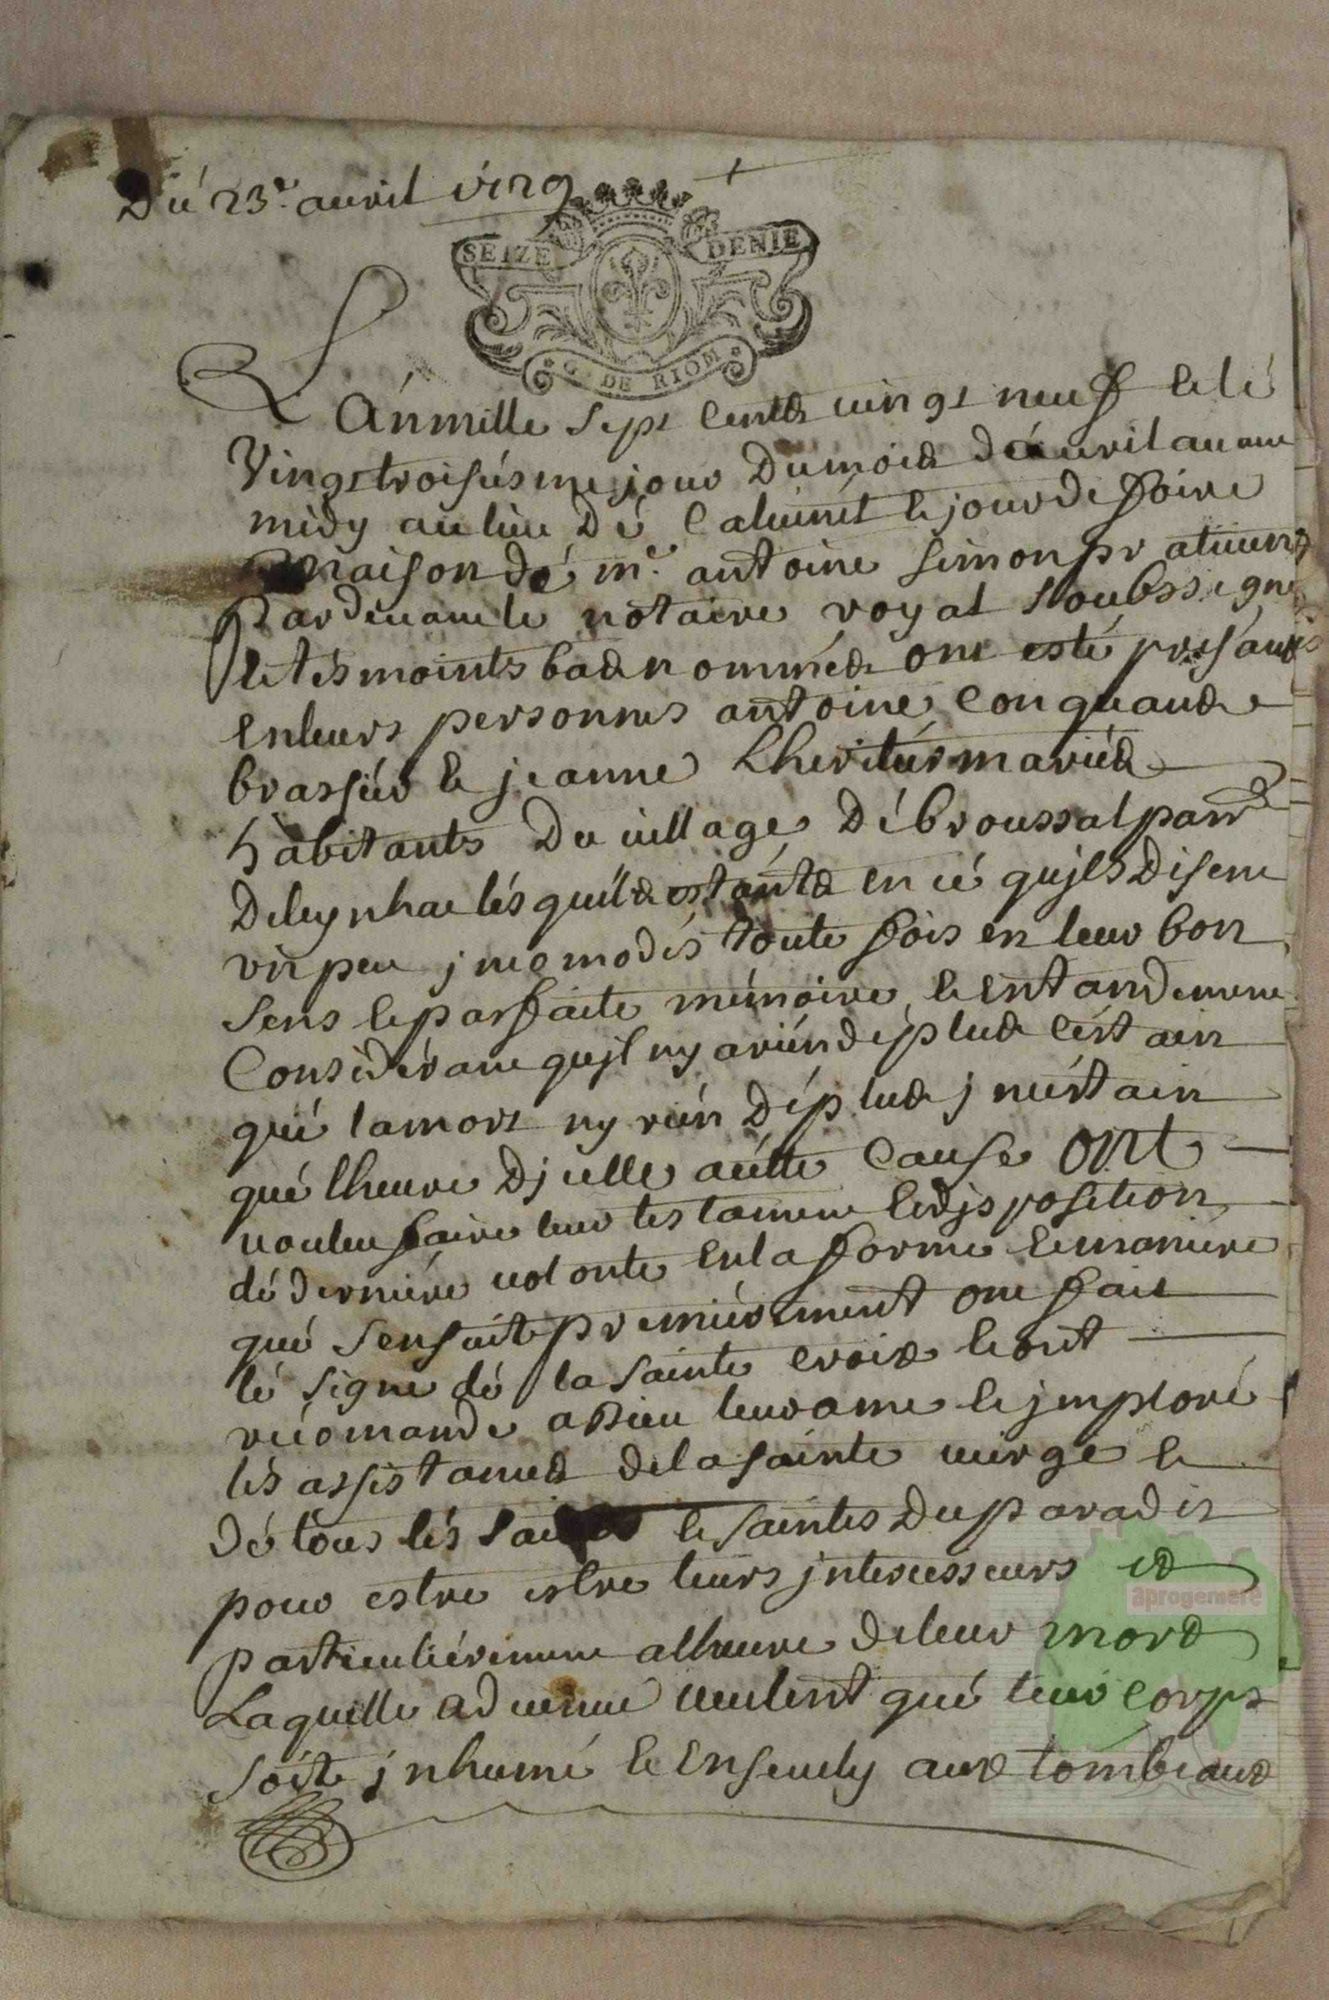 Du 23e. auvril 1729
SEIZE DENIE
G. DE RIOM
Lánmille sept centz vingt neuf & lé
Vingt troisiésme jour Du mois dauvril auant
midy au lieu Dé Caluinét le jour de foire
maison dé me. antoine simon pratiuen
Pardeuant le notaire royal soubssigné
& tésmoints bas nommés ont esté présants
en leurs personnes antoine Conquans
brassiér & jeanne Lheritiér mariés
habitants Du uillage Dé broussal parr
De leynhac lésquels estánts en cé qujls Disent
vn peu jncomodés toute fois en leur bon
sens & parfaite mémoire & entandement
Considérant qujl ny a rién dé plus cértain
qué la mort ny rién Dé plus jncértain
qué lheure Djcelle a cétte Cause ont
vouleu faire leur testament & disposition
dé derniére uolonte en la forme & maniére
qué sensuit premiérement ont fait
lé signe dé la sainte croix & ont
récomandé a Dieu leur ame & jmploré
lés assistances de la sainte uierge &
Dé tous lés saints & saintes Du paradis
pour estre estre leurs jntercesseurs et
particuliérement a lheure de leur mort
Laquelle aduenue ueulent qué leur corps
soit jnhumé & enseuely aux tombeaux
aprogemere